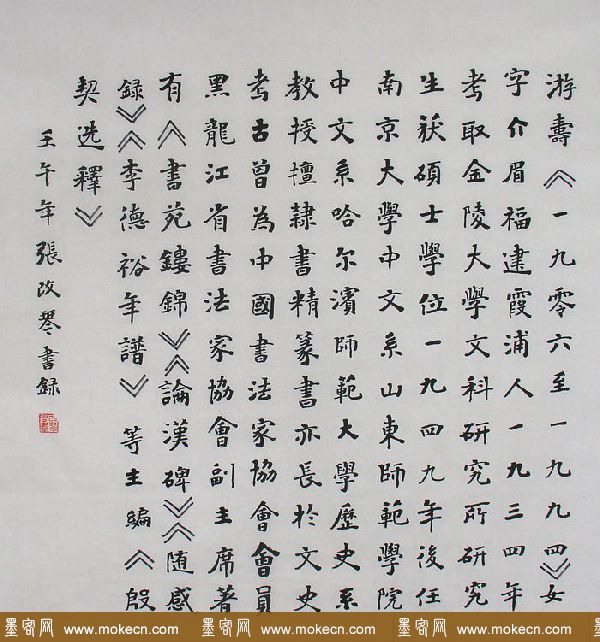 游壽《一九零六至一九九四》女
字介眉福建霞浦人一九三四年
考取金陵大學文科研究所研究
生获碩士學位一九四九年後任
南京大學中文系山東師範學院
中文系哈尔濱師範大學歷史系
教授擅隸書精篆書亦長於文史
考古曾為中國書法家協會會員
黑龍江省書法家協會副主席著
有《書苑鏤錦》《論漢碑》《随感
録》《李德裕年譜》等主編《殷
契选釋》
壬午年張改琴書録
墨客网 www.mokecn.com 墨客网 www.mokecn.com 墨客网 www.mokecn.com